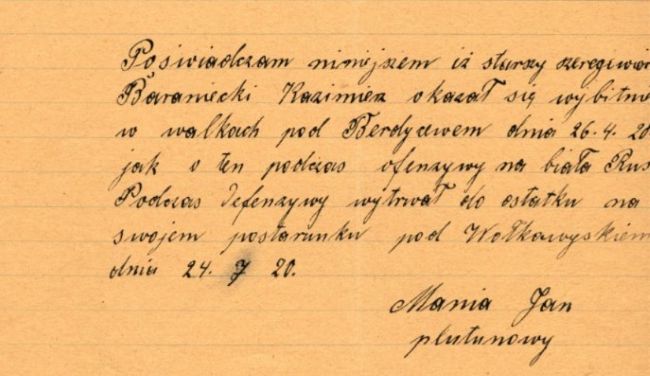 Poświadczam niniejszem iż starszy szeregowiec
Baraniecki Kazimierz okazał się wybitnie
w walkach pod Berdyczewem dnia 26.4.20
jak o ten podczas ofenzywy na biała Rus
Podczas defenzywy wytrwał do ostatku na
swojem postarunku pod Wołkowyskiem
dnia 24. 7 20.
Mania Jan
plutunowy